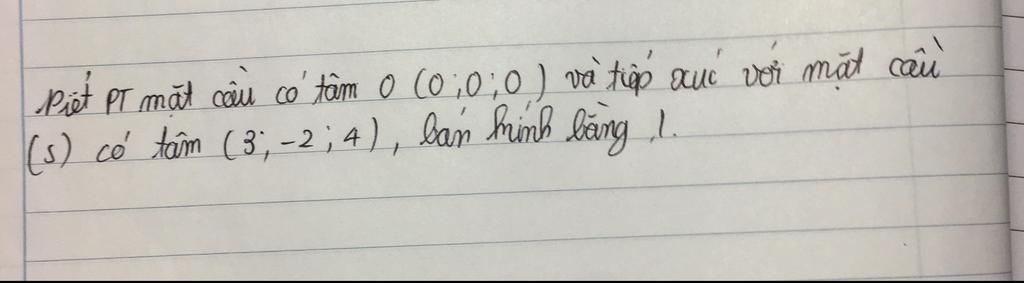 Viết PT mặt cầu có tâm O (0;0;0) và tiếp xúc với mặt cầu
(S) có tâm (3;-2;4), bán kính bằng 1.